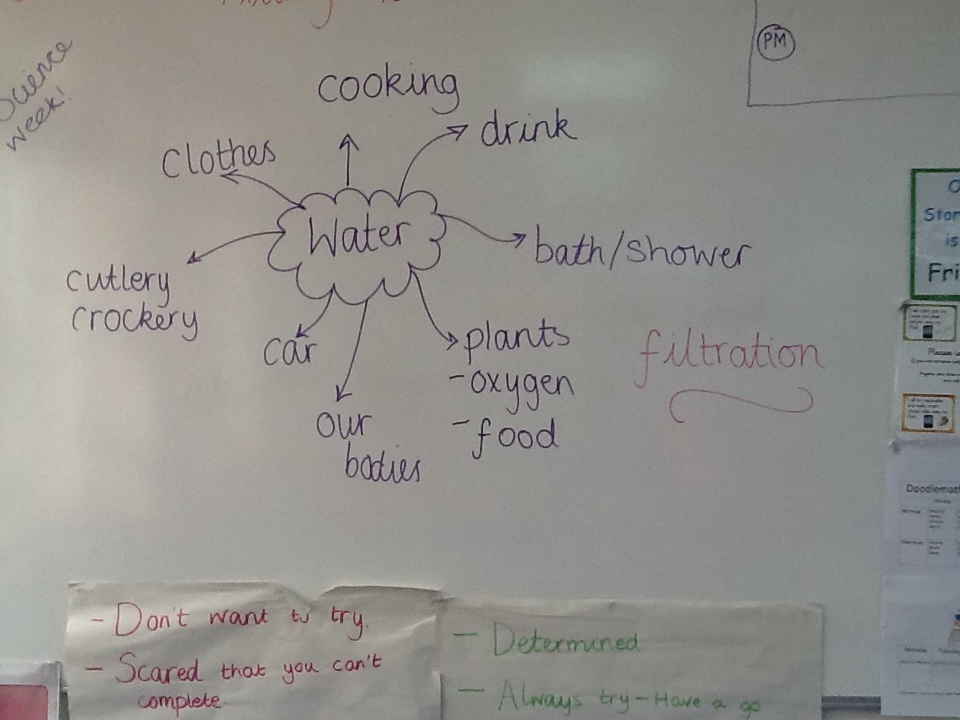 Science
week!
PM
cooking
drink
clothes
Water
bath/shower
cutlery
crockery
car
plants
-oxygen
-food
our
bodies
filtration
Stor
is
Fri
Doodlemat
- Don't want to try.
- Scared that you can't
complete.
- Determined
- Always try - Have a go